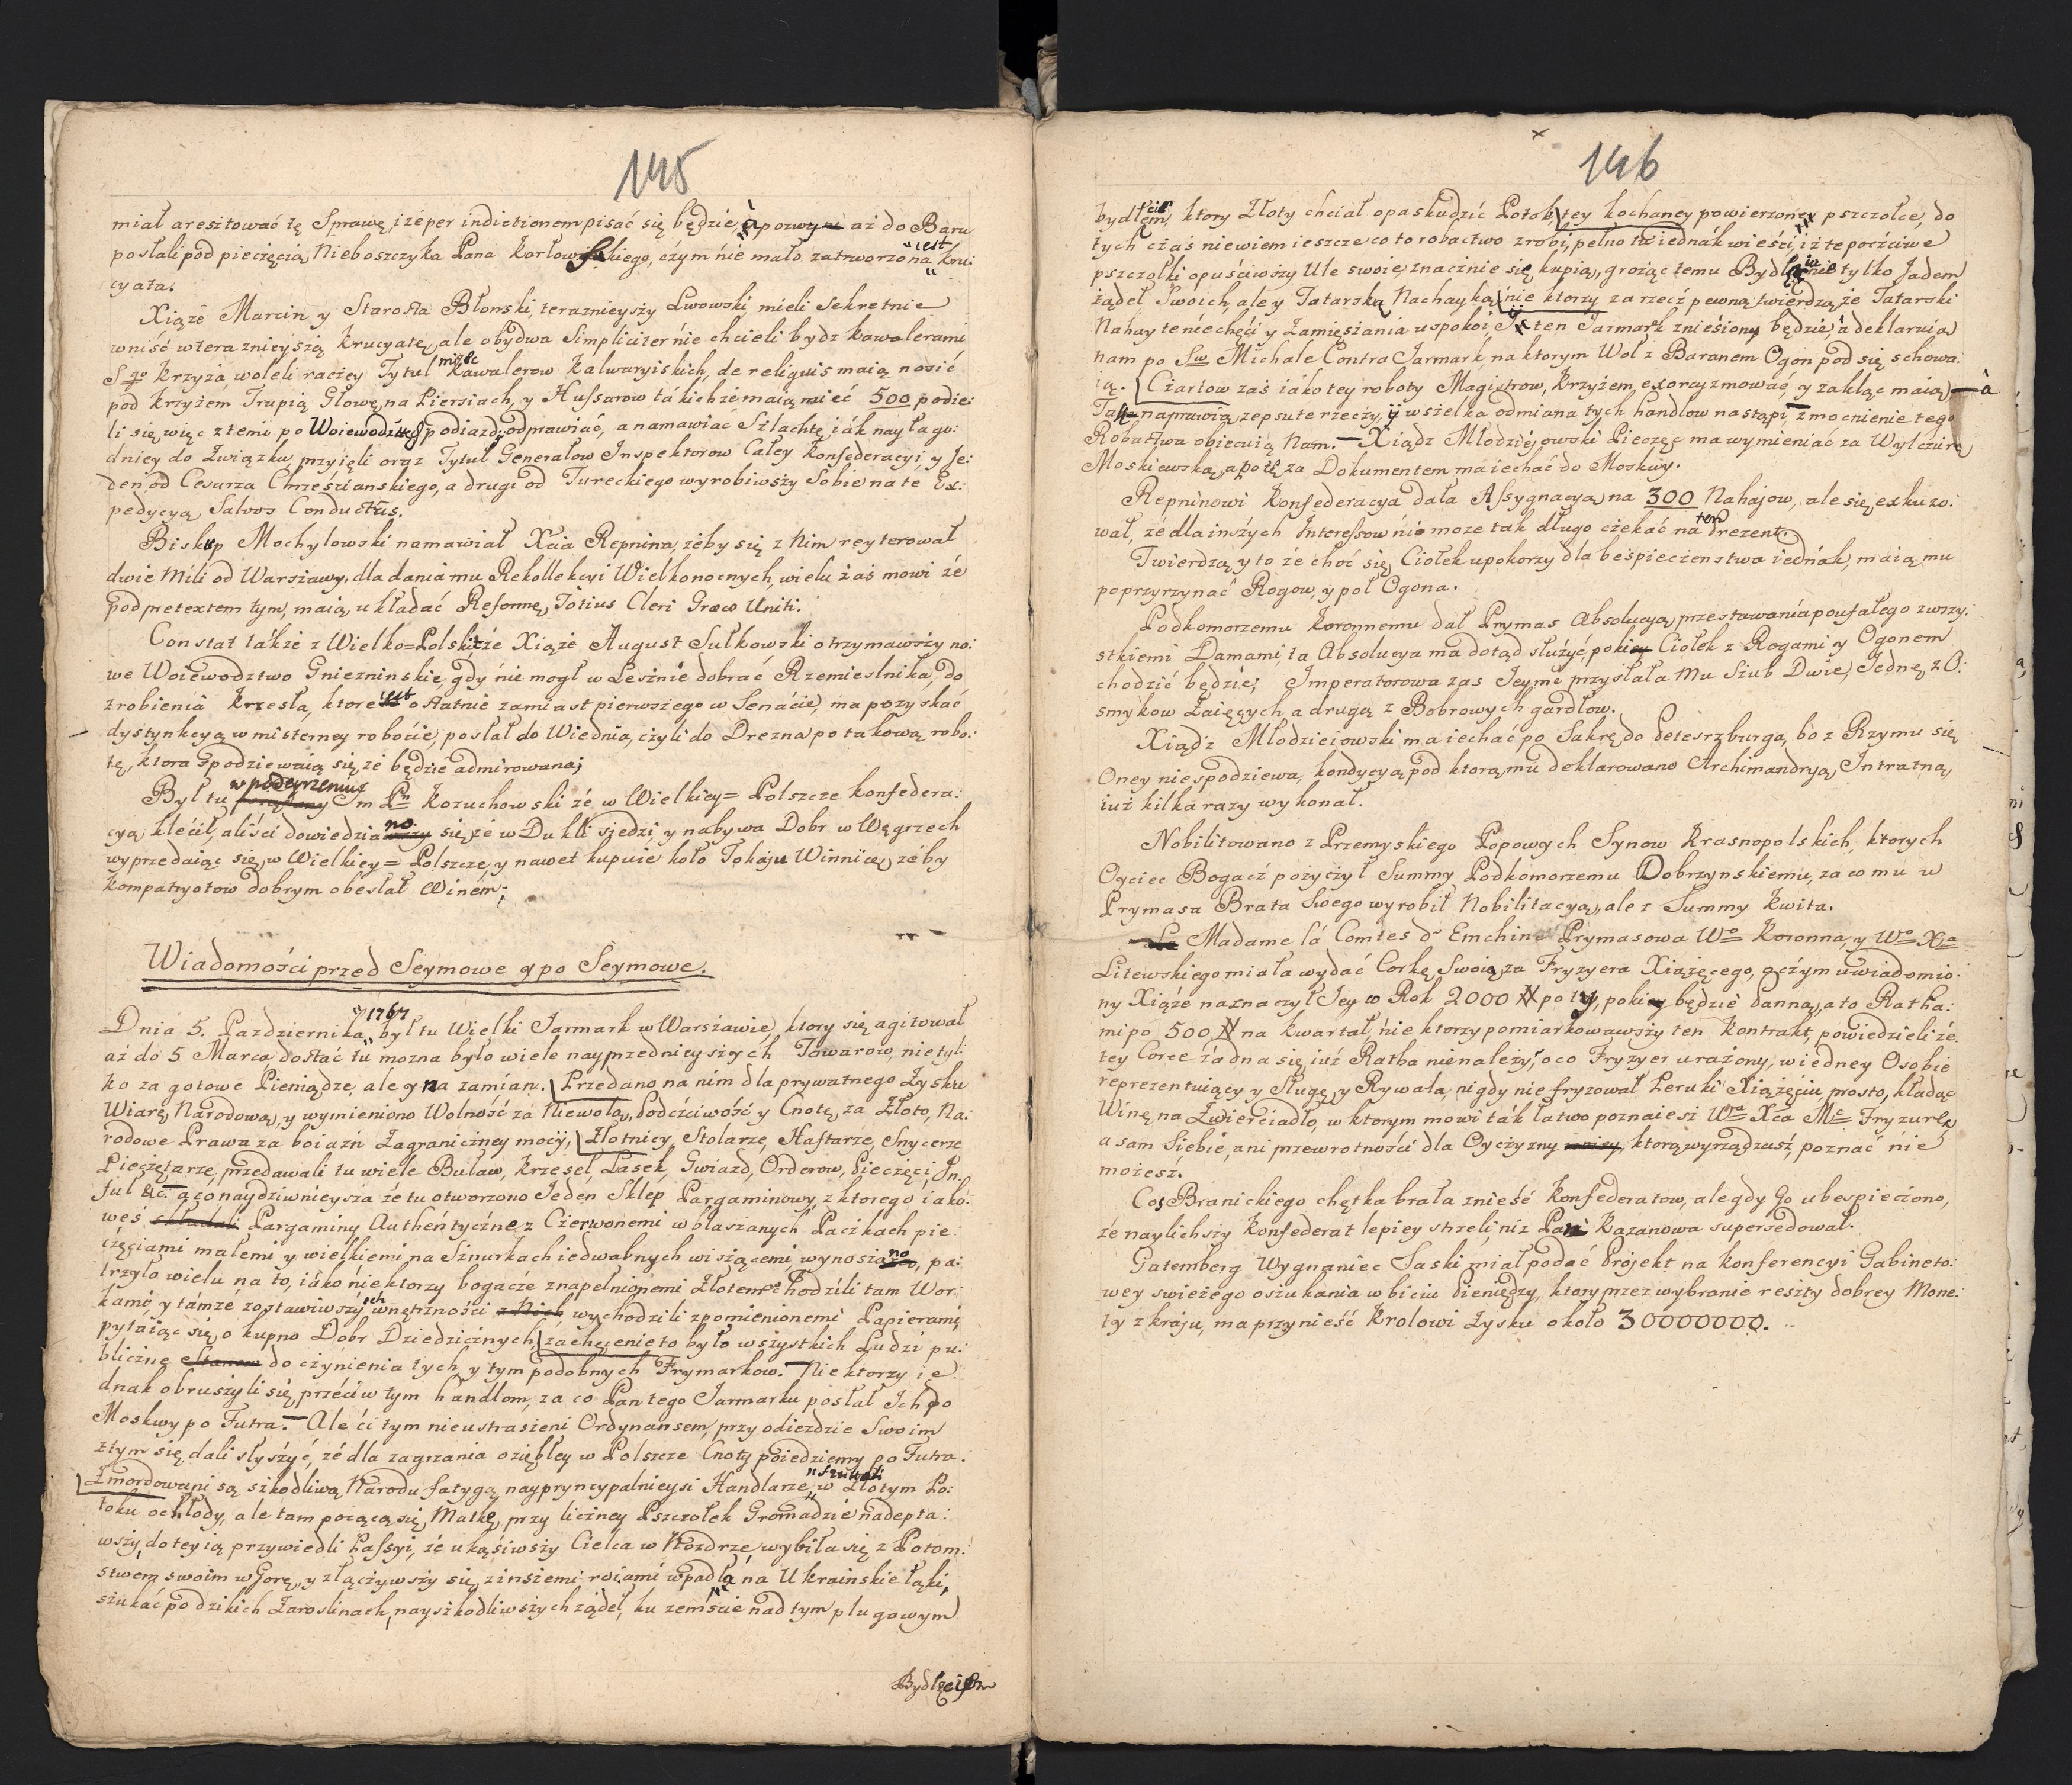 145
miał aresztować tę Sprawę, iże per indictionem pisać się będzie, à pozwy aż do Baru
posłali pod pieczęcią Nieboszczyka Pana Karłowskiego, czym nie mało zatrworzona iest kru:
cyata.
Xiąże Marcin y Starosta Błonski, teraznieyszy Lwowski, mieli Sekretnie
wniść w teraznieyszą Krucyatę, ale obydwa Simpliciter nie chcieli bydz Kawalerami
S go Krzyża, woleli raczey Tytuł mieć Kawalerow Kalwaryiskich, de religuis maią nosić
pod Krzyżem Trupią Głowę, na Piersiach, y Hussarow tákichże maią mieć 500 podie:
li się więc z temi po Woiewodztwach podiazd odprawiáć, a namawiáć Szlachtę iák nayłago:
dniey do Związku, przyięli oraz Tytuł Generałow Inspektorow Całey Konfederacyi, y Je:
den od Cesarza Chrzesciańskiego, a drugi od Tureckiego wyrobiwszy Sobie na tę Ex:
pedycyą Salvos Conductus.
Biskup Mochylowski namawiał Xcia Repnina, żeby się z Nim reyterował
dwie Mili od Warszawy, dla dania mu Rekollekcyi Wielkonocnych, wielu zaś mowi że
pod pretextem tym, maią układać Reformę Totius Cleri Graeco Uniti.
Constat tákże z Wielko=Polski że Xiąże August Sułkowski otrzymawszy no:
we Woiewodztwo Gnieznińskie, gdy nie mogł w Lesznie dobrać Rzemieslnika, do
zrobieniá Krzesła, ktore iest ostatnie zamiast pierwszego w Senácie, ma pozyskać
dystynkcyą w misterney robocie, posłał do Wiednia, czyli do Drezna po takową robo:
tę, ktora spodziewaią się że będzie admirowana;
Był tu w podeyrzeniu Jm Pn Kozuchowski że w Wielkiey=Polszcze konfedera:
cyą klécił, aliści dowiedziano się że w Dukli siedzi, y nabywa Dobr w Węgrzech
wyprzedaiąc się w Wielkiey=Polszcze, y nawet kupuie koło Tokáju Winnice, żeby
kompatryotow dobrym obesłał Winem;
Wiadomości przed Seymowe y po Seymowe.
Dnia 5. Pazdziernika 1767 był tu Wielki Jarmark w Warszawie, ktory się agitował
aż do 5 Marca dostać tu mozna było wiele nayprzednieyszych Towarow, nie tyl:
ko za gotowe Pieniądze, ale y na zamian. Przedano na nim dla prywatnego Zysku
Wiarę Narodową, y wymieniono Wolność za Niewolą, Podcźciwość y Cnotę za Złoto, Na:
rodowe Prawa za boiaźń Zagraniczney mocy, Złotnicy, Stolarze, Haftarze, Snycerze
Pieczętarze, przedawali tu wiele Buław, Krzeseł, Lasek, Gwiazd, Orderow, Pieczęci, In:
ful &c. a co naydziwnieysza że tu otworzono Jeden Sklep Pargaminowy, z ktorego iako:
weś składali Pargaminy Authentyczne z Czerwonemi w blaszanych Paczkach pie:
częciami małemi y wielkiemi na Sznurkach iedwabnych wiszącemi wynoszano, pa:
trzyło wielu na to, iáko niektorzy bogacze z napełnionemi Złotem Chodzili tam Wor:
kami, y támże zostawiwszy ich wnętrzności z Nich wychodzili z pomienionemi Papierami,
pytáiąc się o kupno Dobr Dziedzicznych, zachęcenie to było wszystkich Ludzi pu:
bliczne Stanow do czynienia tych y tym podobnych Frymarkow. Niektorzy ie:
dnak obruszyli się przeciw tym handlom, za co Pan tego Jarmarku posłał Ich do
Moskwy po Futra. Ale ci tym nieustraszeni Ordynansem, przy odiezdzie Swoim
z tym się dali słyszyć, że dla zagrzania oziębłey w Polszcze Cnoty poiedziemy po Futra.
Zmordowani są szkodliwą Narodu fatygą naypryncypalnieysi Handlarze, szukali w Złotym Po:
toku ochłody, ale tam pocącą się Matkę, przy liczney Pszczołek Gromadzie nadepta:
wszy, do tey ią przywiedli Passyi, że ukąsiwszy Cielca w Nozdrze wybiła się z Potom:
stwem swoim w Gorę, y złączywszy się z inszemi roiami wpadła na Ukrainskie łąki,
szukáć po dzikich Zaroslinach, nayszkodliwszych żądeł, ku zemście nad tym plugawym
Bydlęciem
146
bydlęciem, ktory Złoty chciał opaskudzić Potok, tey kochaney powierzoney pszczołce, do
tych czas niewiem ieszcze co to robactwo zrobi, pełno tu iednák wieści, iż te poczciwe
pszczołki opuściwszy Ule swoie, znacznie się kupią, grożąc temu Bydlęciu nie tylko Jadem
żądeł Swoich, ale y Tatarską Nachayką, nie ktorzy za rzecz pewną twierdzą, że Tatarski
Nahay te niechęci y Zamięszania uspokoi, y ten Jarmark zniesiony będzie, á deklaruią
nam po Sw. Michale Contra Jarmark, na ktorym Woł z Baranem Ogon pod się schowa:
ią. Czartow zaś iáko tey roboty Magistrow, Krzyżem, exorcyzmować, y zakląć maią — á
Tak naprawią zepsute rzeczy, y wszelka odmiana tych handlow nastąpi, zmocnienie tego
Robactwa obiecuią Nam. — Xiądz Młodzieiowski Pieczęć ma wymieniáć za Wyłczurę
Moskiewską, a po tę za Dokumentem ma iechać do Moskwy.
Repninowi Konfederacya dała Assygnacyą na 300 Nahajow, ale się exkuzo:
wał, że dla inszych Interessow nie moze tak długo czekać na ten Prezent.
Twierdzą y to że choć się Ciołek upokorzy dla beśpieczenstwa iednák, maią mu
poprzyrzynać Rogow, y poł Ogona.
Podkomorzemu Koronnemu dał Prymas Absolucyą przestawania poufałego z wszy:
stkiemi Damami, ta Absolucya ma dotąd służyć, poki Ciołek z Rogami y Ogonem
chodzić będzie; Imperatorowa zas Jeymć przysłała Mu Szub Dwie, Jednę z O:
smykow Zaięczych, a drugą z Bobrowych gardłow.
Xiądz Młodzieiowski ma iechać po Sakrę do Petesrzburga, bo z Rzymu się
Oney niespodziewa, kondycyą pod ktorą mu deklarowano Archimandryą Intratną,
iuż kilka razy wykonał.
Nobilitowano z Przemyskiego Popowych Synow Krasnopolskich, ktorych
Oyciec Bogacź pożyczył Summy Podkomorzemu Dobrzynskiemu, za co mu w
Prymasa Brata Swego wyrobił Nobilitacyą, ale z Summy kwita.
La Madame lá Comtes d' Emchin Prymasowa We Koronna, y We Xa
Litewskiego miała wydać Corkę Swoią za Fryzyera Xiążęcego, o czym uwiadomio:
ny Xiąże naznaczył Jey w Rok 2000 po ty, poki będzie danną, a to Ratha:
mi po 500 na kwartał, nie ktorzy pomiarkowawszy ten kontrakt, powiedzieli że
tey Corce żadna się iuż Ratha nie należy, oco Fryzyer urażony, w iedney Osobie
reprezentuiący y Sługę, y Rywala, nigdy nie fryzował Peruki Xiążęciu prosto, kładąc
Winę na Zwierciadło, w ktorym mowi ták łatwo poznaiesz Wa Xca Mc Fryzurę,
a sam Siebie, ani przewrotności dla Oyczyzny ktorą wyrządzasz, poznać nie
możesz.
Coś Branickiego chętka brała znieść Konfederatow, ale gdy Go ubespieczono,
że naylichszy Konfederat lepiey strzeli, niz Pani Kazanowa supersedował.
Gatemberg Wygnaniec Saski miał podać Projekt na Konferencyi Gabineto:
wey swieżego oszukania w biciu Pieniędzy, ktory przez wybranie reszty dobrey Mone:
ty z kráju, ma przynieść Krolowi Zysku około 30000000.